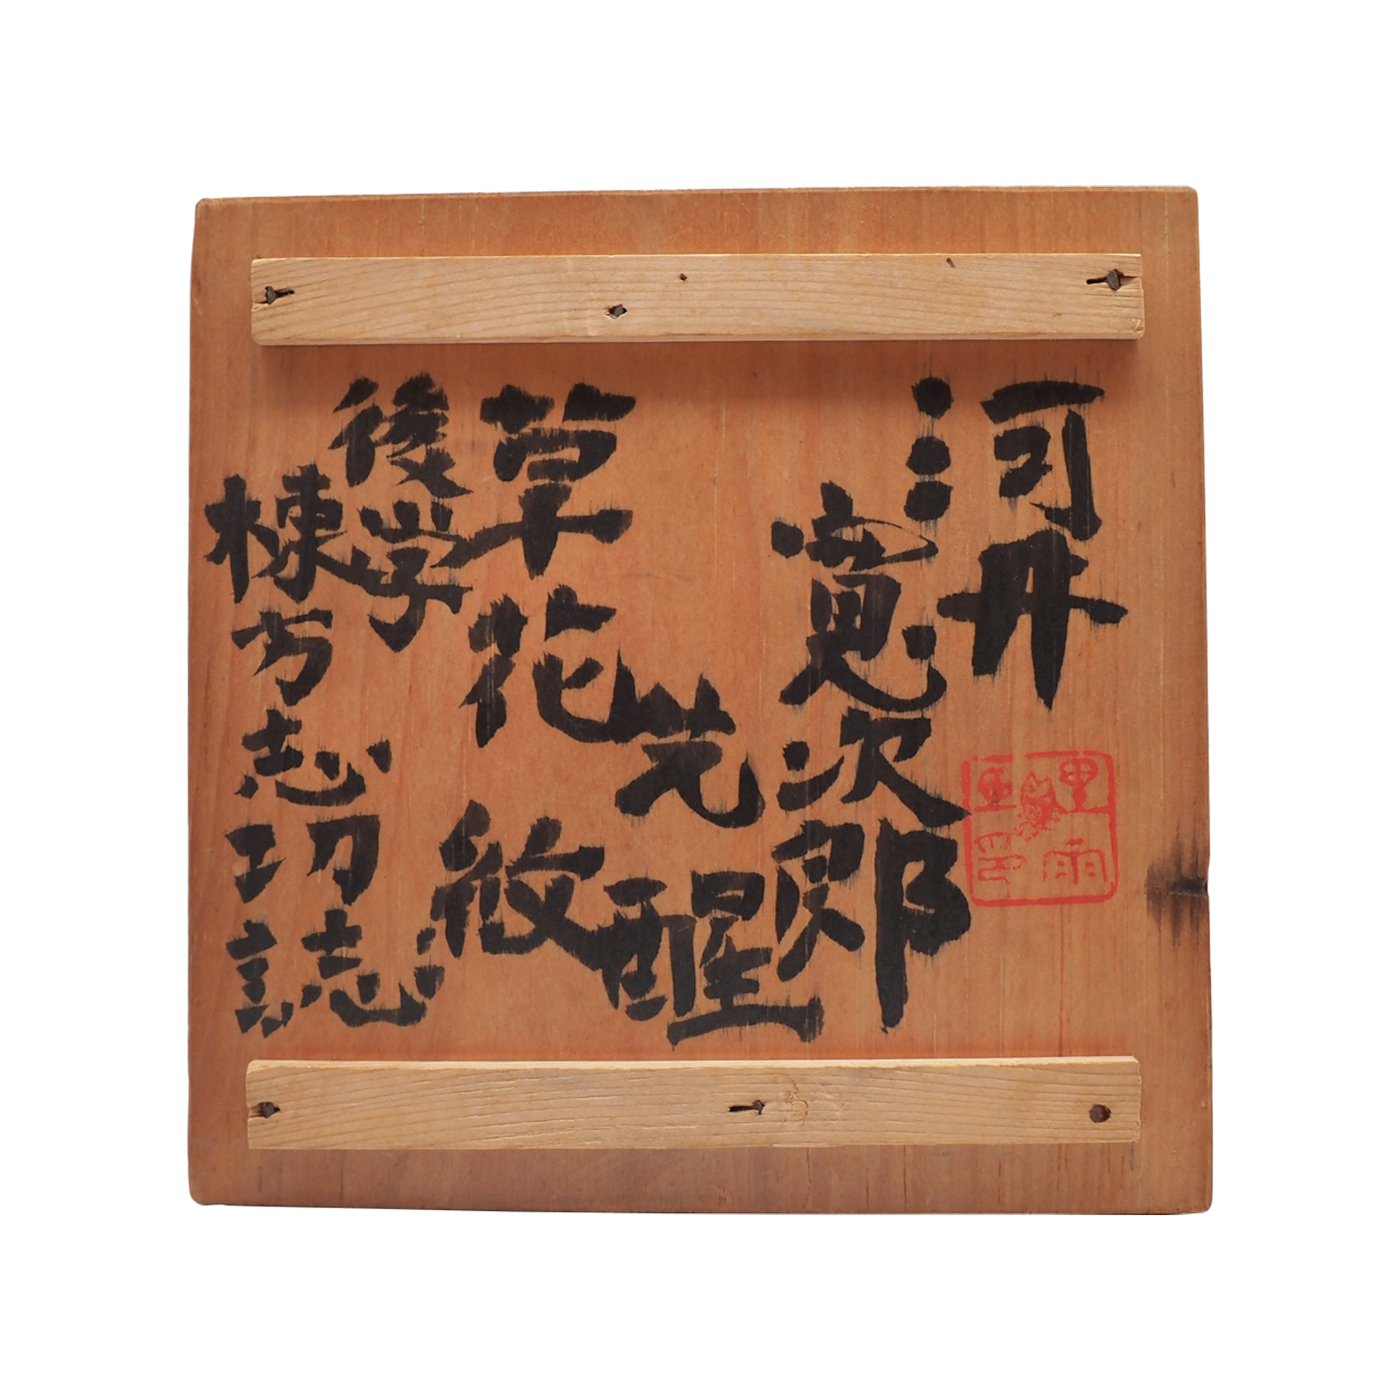 河井
寛次郎
先醒
草花紋
後学
棟方志功誌